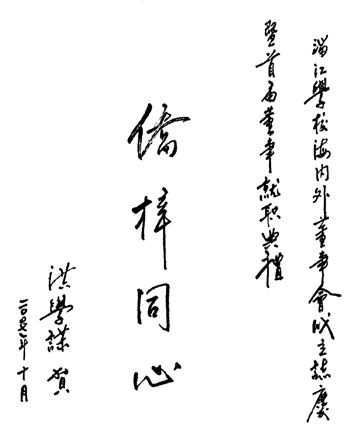 湍江學校海内外董事會成立誌慶
暨首届董事就职典禮
僑梓同心
洪學謀 賀
二〇〇七年十月